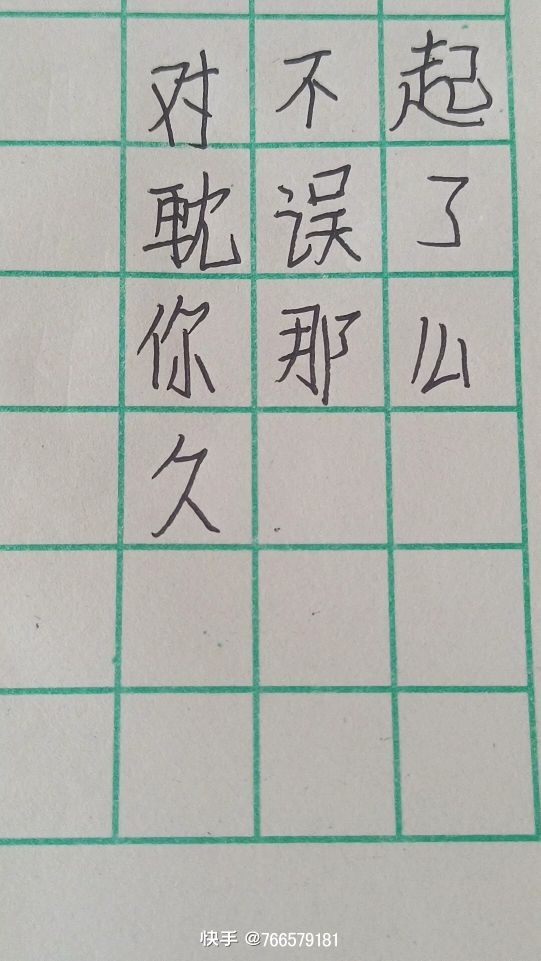 对不起
耽误了
你那么
久
快手 @766579181